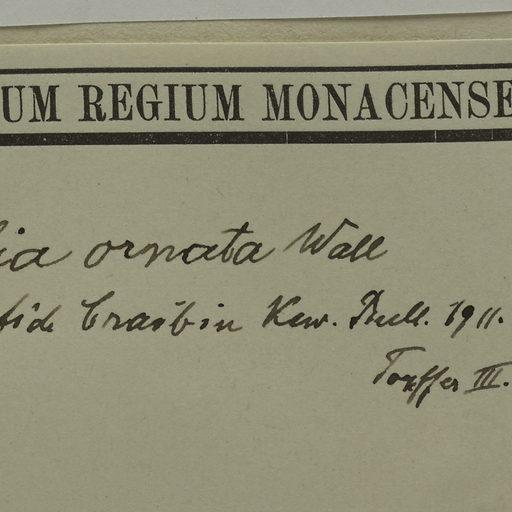 UM REGIUM MONACENSE
ia ornata Wall
fide Craib in Kew. Bull. 1911.
Toepffer III.